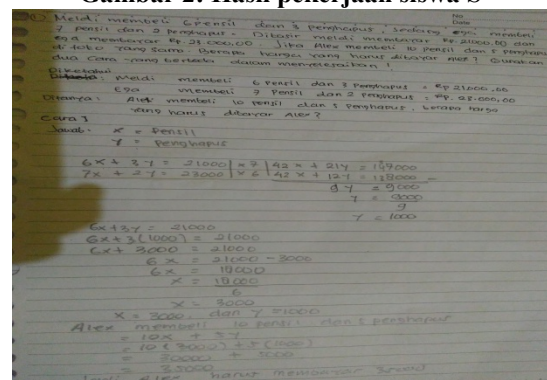 Gambar 2. Hasil pekerjaan siswa S
No
Date
Meldi membeli 6 pensil dan 3 penghapus, sedang ega membeli
7 pensil dan 2 penghapus. Ditoko meldi membayar Rp. 21000,00 dan
ega membayar Rp. 23.000,00 Jika Alex membeli 10 pensil dan 5 penghapus
di toko yang sama. Berapa harga yang harus dibayar Alex? Gunakan
dua cara yang berbeda dalam menyelesaikan!
Diketahui
Meldi membeli 6 pensil dan 3 penghapus = Rp 21000,00
Ega membeli 7 pensil dan 2 penghapus = Rp. 23.000,00
Ditanya: Alex membeli 10 pensil dan 5 penghapus, berapa harga
yang harus dibayar Alex?
Cara 1
Jawab. x = pensil
y = penghapus
6x + 3y = 21000 | x 7 | 42x + 21y = 147000
7x + 2y = 23000 | x 6 | 42x + 12y = 138000 -
9y = 9000
y = 9000
9
y = 1000
6x + 3y = 21000
6x + 3(1000) = 21000
6x + 3000 = 21000
6x = 21000 - 3000
6x = 18000
x = 18000
6
x = 3000
x = 3000 dan y = 1000
Alex membeli 10 pensil dan 5 penghapus
= 10x + 5y
= 10(3000) + 5(1000)
= 30000 + 5000
= 35000
Alex harus membayar 35000